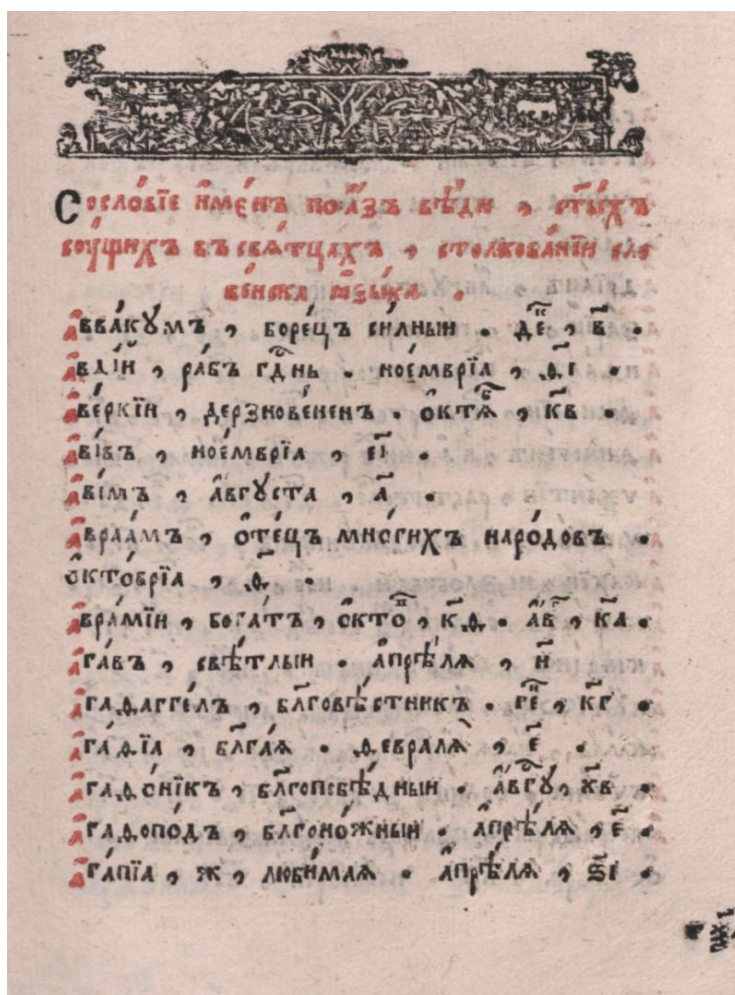 Сословїе и҆ме́нъ по а҆́зъ вѣ́ди , ст҃ы́хъ
сѹ́щихъ въ свѧ́тцахъ , столкова́нїи сло
ве́нска ꙗ҆зы́ка .
а҆ввакꙋ́мъ , боре́цъ си́лныи . деⷦ҇ , в҃ .
а҆вді́й , ра́бъ гдⷭ҇нь . ное́мврїа , ѳ҃і .
а҆ве́ркїи , дерзнове́ненъ . ѻ҆ктѧⷠ҇ , к҃в .
а҆ві́въ , ное́мврїа , є҃і .
а҆ві́мъ , а҆́вгꙋста , а҃ .
а҆враа́мъ , ѻ҆те́цъ мно́гихъ наро́довъ .
ѻ҆ктѡ́брїа , ѳ҃ .
а҆вра́мїи , бога́тъ , ѻ҆ктоⷡ҇ , к҃ѳ . а҆́вⷢ҇ , к҃а .
а҆га́въ , свѣ́тлыи . а҆прѣ́лѧ , и҃
а҆гаѳагге́лъ , бл҃говѣ́стникъ . геⷩ҇ , к҃г .
а҆га́ѳїа , бл҃га́ѧ . ѳевралѧ̀ , є҃ .
а҆гаѳо́никъ , бл҃гопобѣ́дныи . а҆́вгꙋⷭ҇ , к҃в .
а҆гаѳопо́дъ , бл҃гоно́жныи . а҆прѣ́лѧ , є҃ .
а҆га́пїа , ж , люби́маѧ . а҆прѣ́лѧ , ѕ҃і .